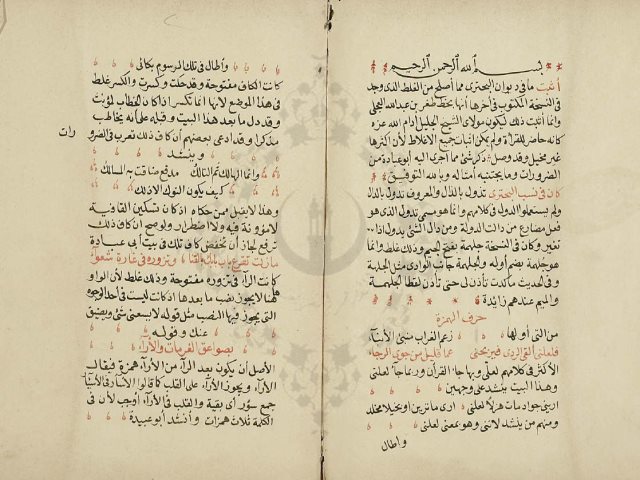 بسم الله الرحمن الرحيم
أثبت ما في ديوان البحتري مما أصلح من الغلط الذي وجد
في النسخة المكتوب في آخرها أنها بخط ظفر بن عبد الله العجلي
وانما أثبت ذلك ليكون مولاي الشيخ الجليل ادام الله عزه
كانه حاضر للقرأة ولم يمكن اثبات جميع الاغلاط لأن أكثرها
غير مخيل وقد وصل ذكر شئ مما أجرى اليه أبو عبادة من
الضرورات وما يجتنبه أمثاله وبالله التوفيق
كان في نسب البحتري تذول بالذال والمعروف تدول بالدال
ولم يستعملوا الذول في كلامهم وانما هو مسمى بتدول الذي هو
فعل مضارع من دالت الدولة ومن دال الشئ يدول اذا
تغير وكان في النسخة جلهمة بفتح الجيم وذلك غلط وانما
هو جُلهمة بضم أوله والجلهمة جانب الوادي مثل الجلهة
وفي الحديث ما كدت تأذن لي حتى تأذن لفظا الجلهمة
والميم عندهم زائدة
حرف الهمزة
من التي أولها زعم الغراب منبئ الأنباء
فلعلني ألقى الردى فيريحني عما قليل من جوى الرحاء
الأكثر في كلامهم لعلي وبها جاء القرآن وربما جاء لعلني
وهذا البيت ينشد على وجهين
اريني جوادا مات هزلا لعلني ارى ما ترين او بخيلا مخلدا
ومنهم من ينشد لأنني وهو بمعنى لعلني
واطال
وأطال في تلك الرسوم بكائي
كانت الكاف مفتوحة وقد حكت وكسرت والكسر غلط
في هذا الموضع لأنها انما تكسر اذا كان الخطاب لمؤنث
وقد دل ما بعد هذا البيت وقبله على أنه يخاطب
مذكرا وقد ادعى بعضهم أن كاف ذلك تعرب في الضرو
رات
وينشد
وانما الهالك ثم التالك مدفع ضاقت به المسالك
كيف يكون النوك الا ذلك
وهذا لا يقبل ممن حكاه اذ كان تسكين القافية
لا مؤونة فيه ولا اضطرار ولو صح أن كاف ذلك
ترفع لجاز أن تخفض كاف تلك في بيت أبي عبادة
ما زلت تقرع باب بابك بالقنا وتزوره في غارة شعواء
كانت الراء في تزوره مفتوحة وذلك غلط لأن الواو
هنا لا يجوز نصب ما بعدها اذ كانت ليست في أحد الوجوه
التي يجوز فيها النصب مثل قوله لا يسعني شئ ويضيق
عنك وقوله
بصواعق العزمات والآراء
الأصل أن يكون بعد الراء من الأرآء همزة فيقال
الأرآء ويجوز الآراء على القلب كما قالوا الآسار في الأسآر
جمع سؤر أي بقية والقلب في الآراء أوجب لأن في
الكلمة ثلاث همزات وأنشد أبو عبيدة